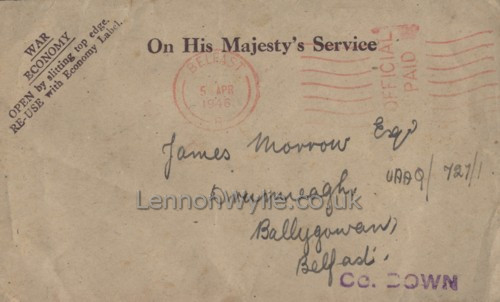 WAR
ECONOMY
OPEN by slitting top edge.
RE-USE with Economy Label.
On His Majesty's Service
BELFAST
5 APR
1946
OFFICIAL
PAID
James Morrow Esq
UAAQ/727/1
LennonWylie.co.uk
Ballygowan,
Belfast.
Co. DOWN